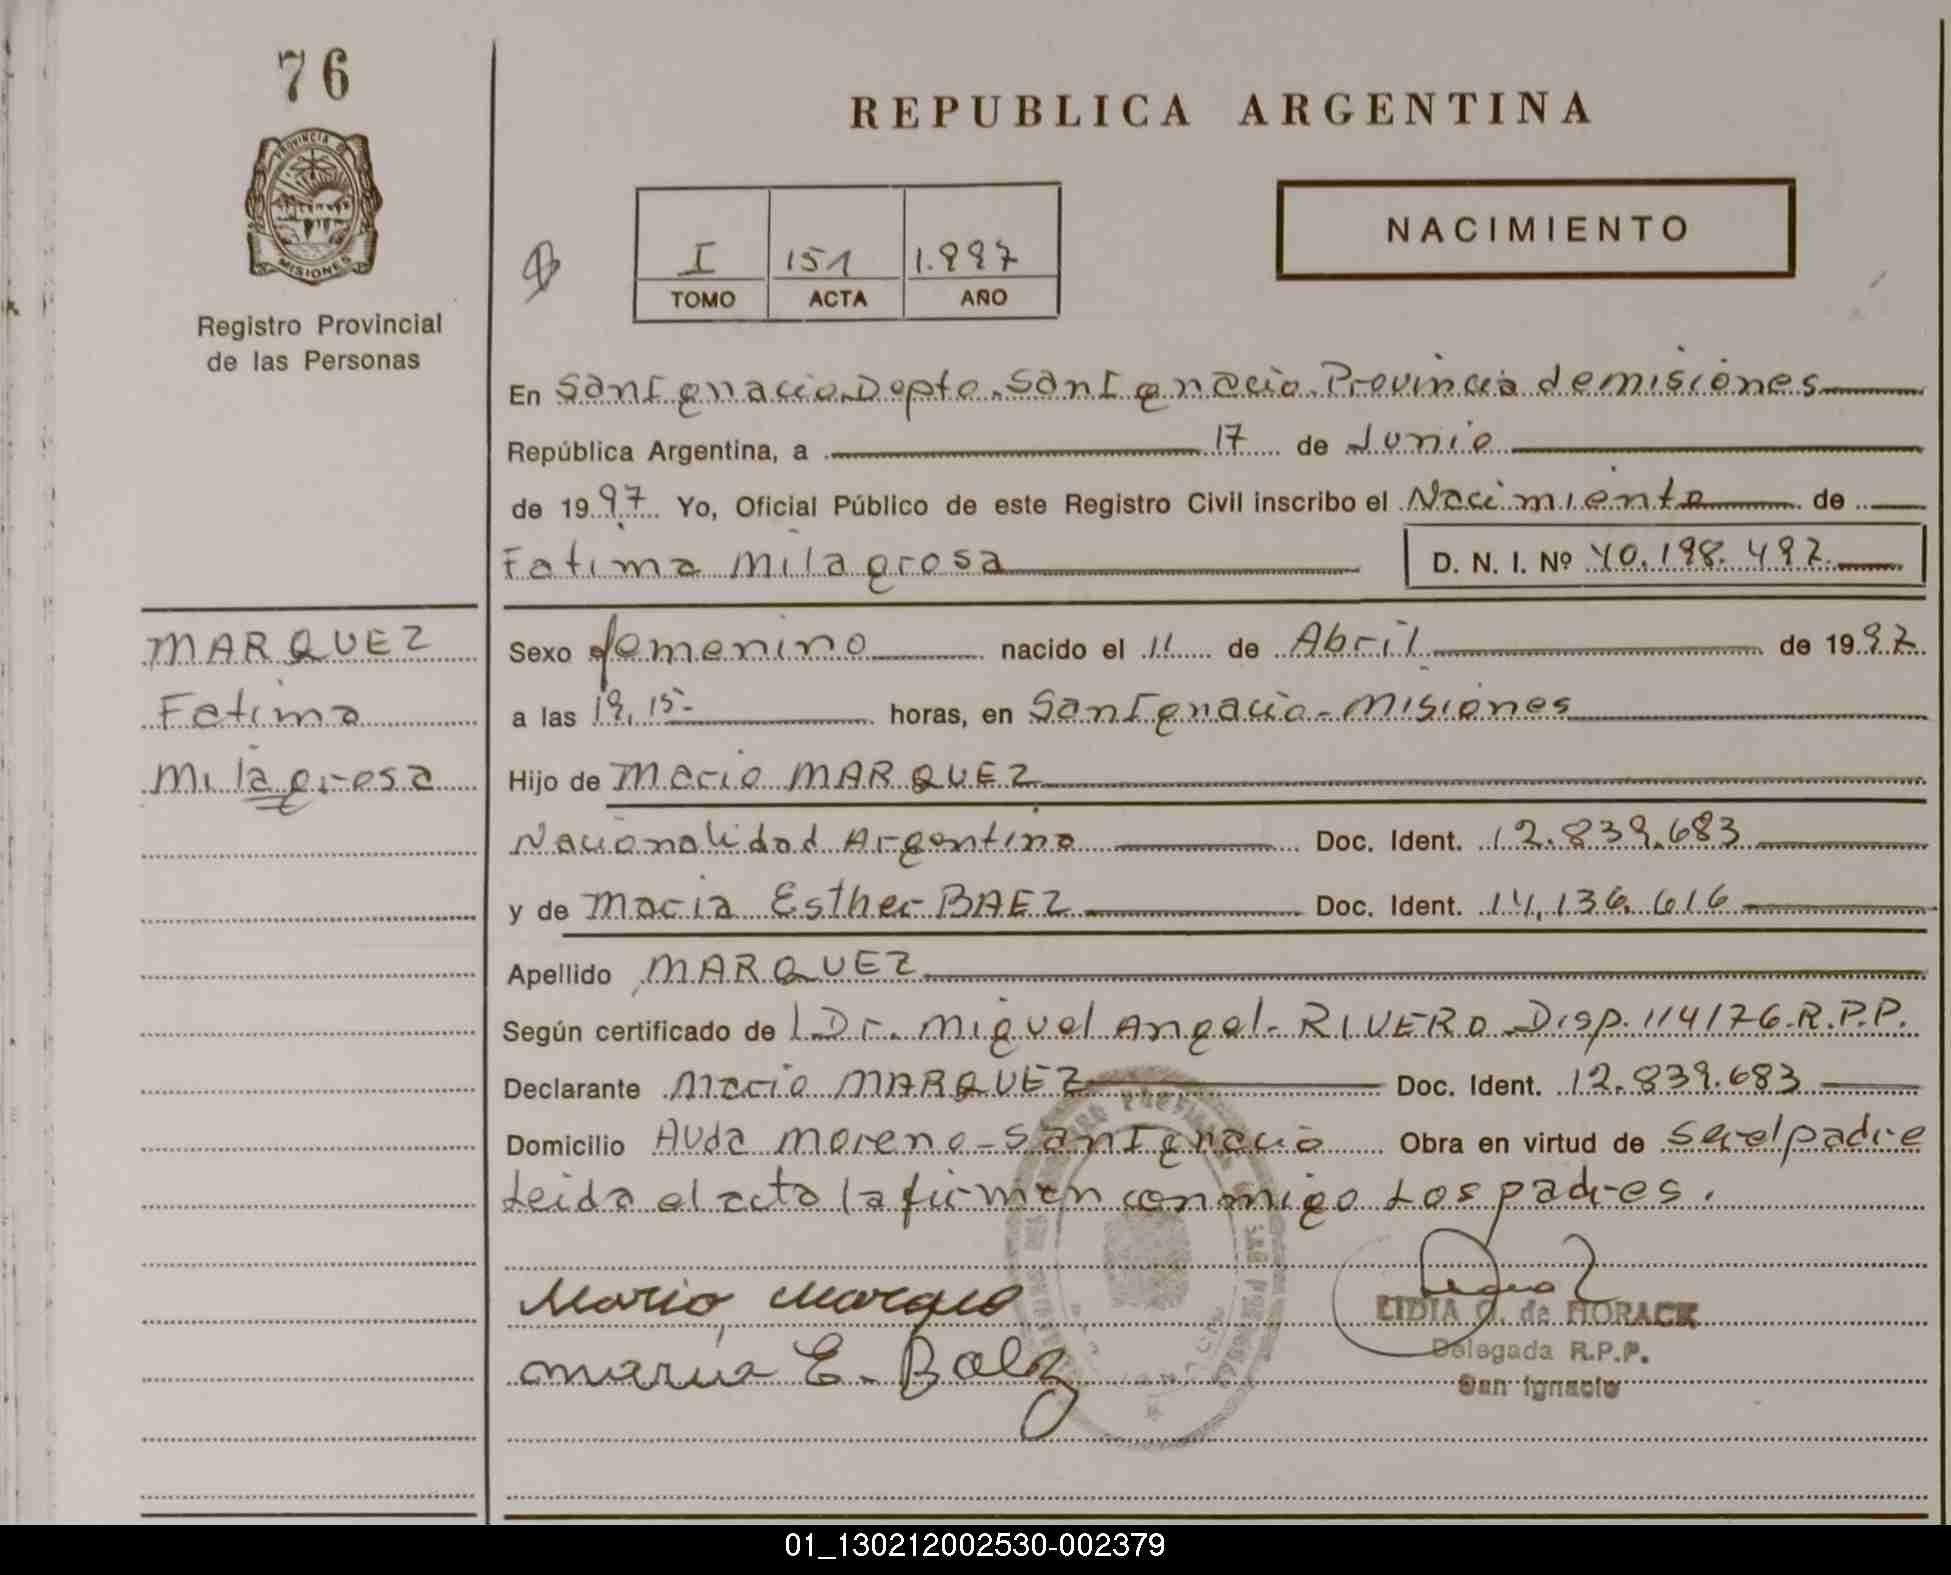 76
PROVINCIA DE
MISIONES
Registro Provincial
de las Personas
REPUBLICA ARGENTINA
I 151 1.997
TOMO ACTA AÑO
NACIMIENTO
En San Ignacio Depto. San Ignacio. Provincia de misiones
República Argentina, a 17 de Junio
de 1997 Yo, Oficial Público de este Registro Civil inscribo el Nacimiento de
Fatima milagrosa D. N. I. Nº 40.198.497
MARQUEZ
Fatima
milagrosa
Sexo femenino nacido el 11 de Abril de 1997
a las 19,15- horas, en San Ignacio - misiones
Hijo de Mario MARQUEZ
Nacionalidad Argentina Doc. Ident. 12.839.683
y de Maria Esther BAEZ Doc. Ident. 14.136.616
Apellido MARQUEZ
Según certificado de Dr. Miguel Angel RIVERO Disp. 114/76 R.P.P.
Declarante Mario MARQUEZ Doc. Ident. 12.839.683
Domicilio Avda Moreno - San Ignacio Obra en virtud de ser el padre
Leida el acta la firman conmigo Los padres.
Mario Marques
maria E. Baez
LIDIA G. de HORACK
Delegada R.P.P.
San Ignacio
01_130212002530-002379